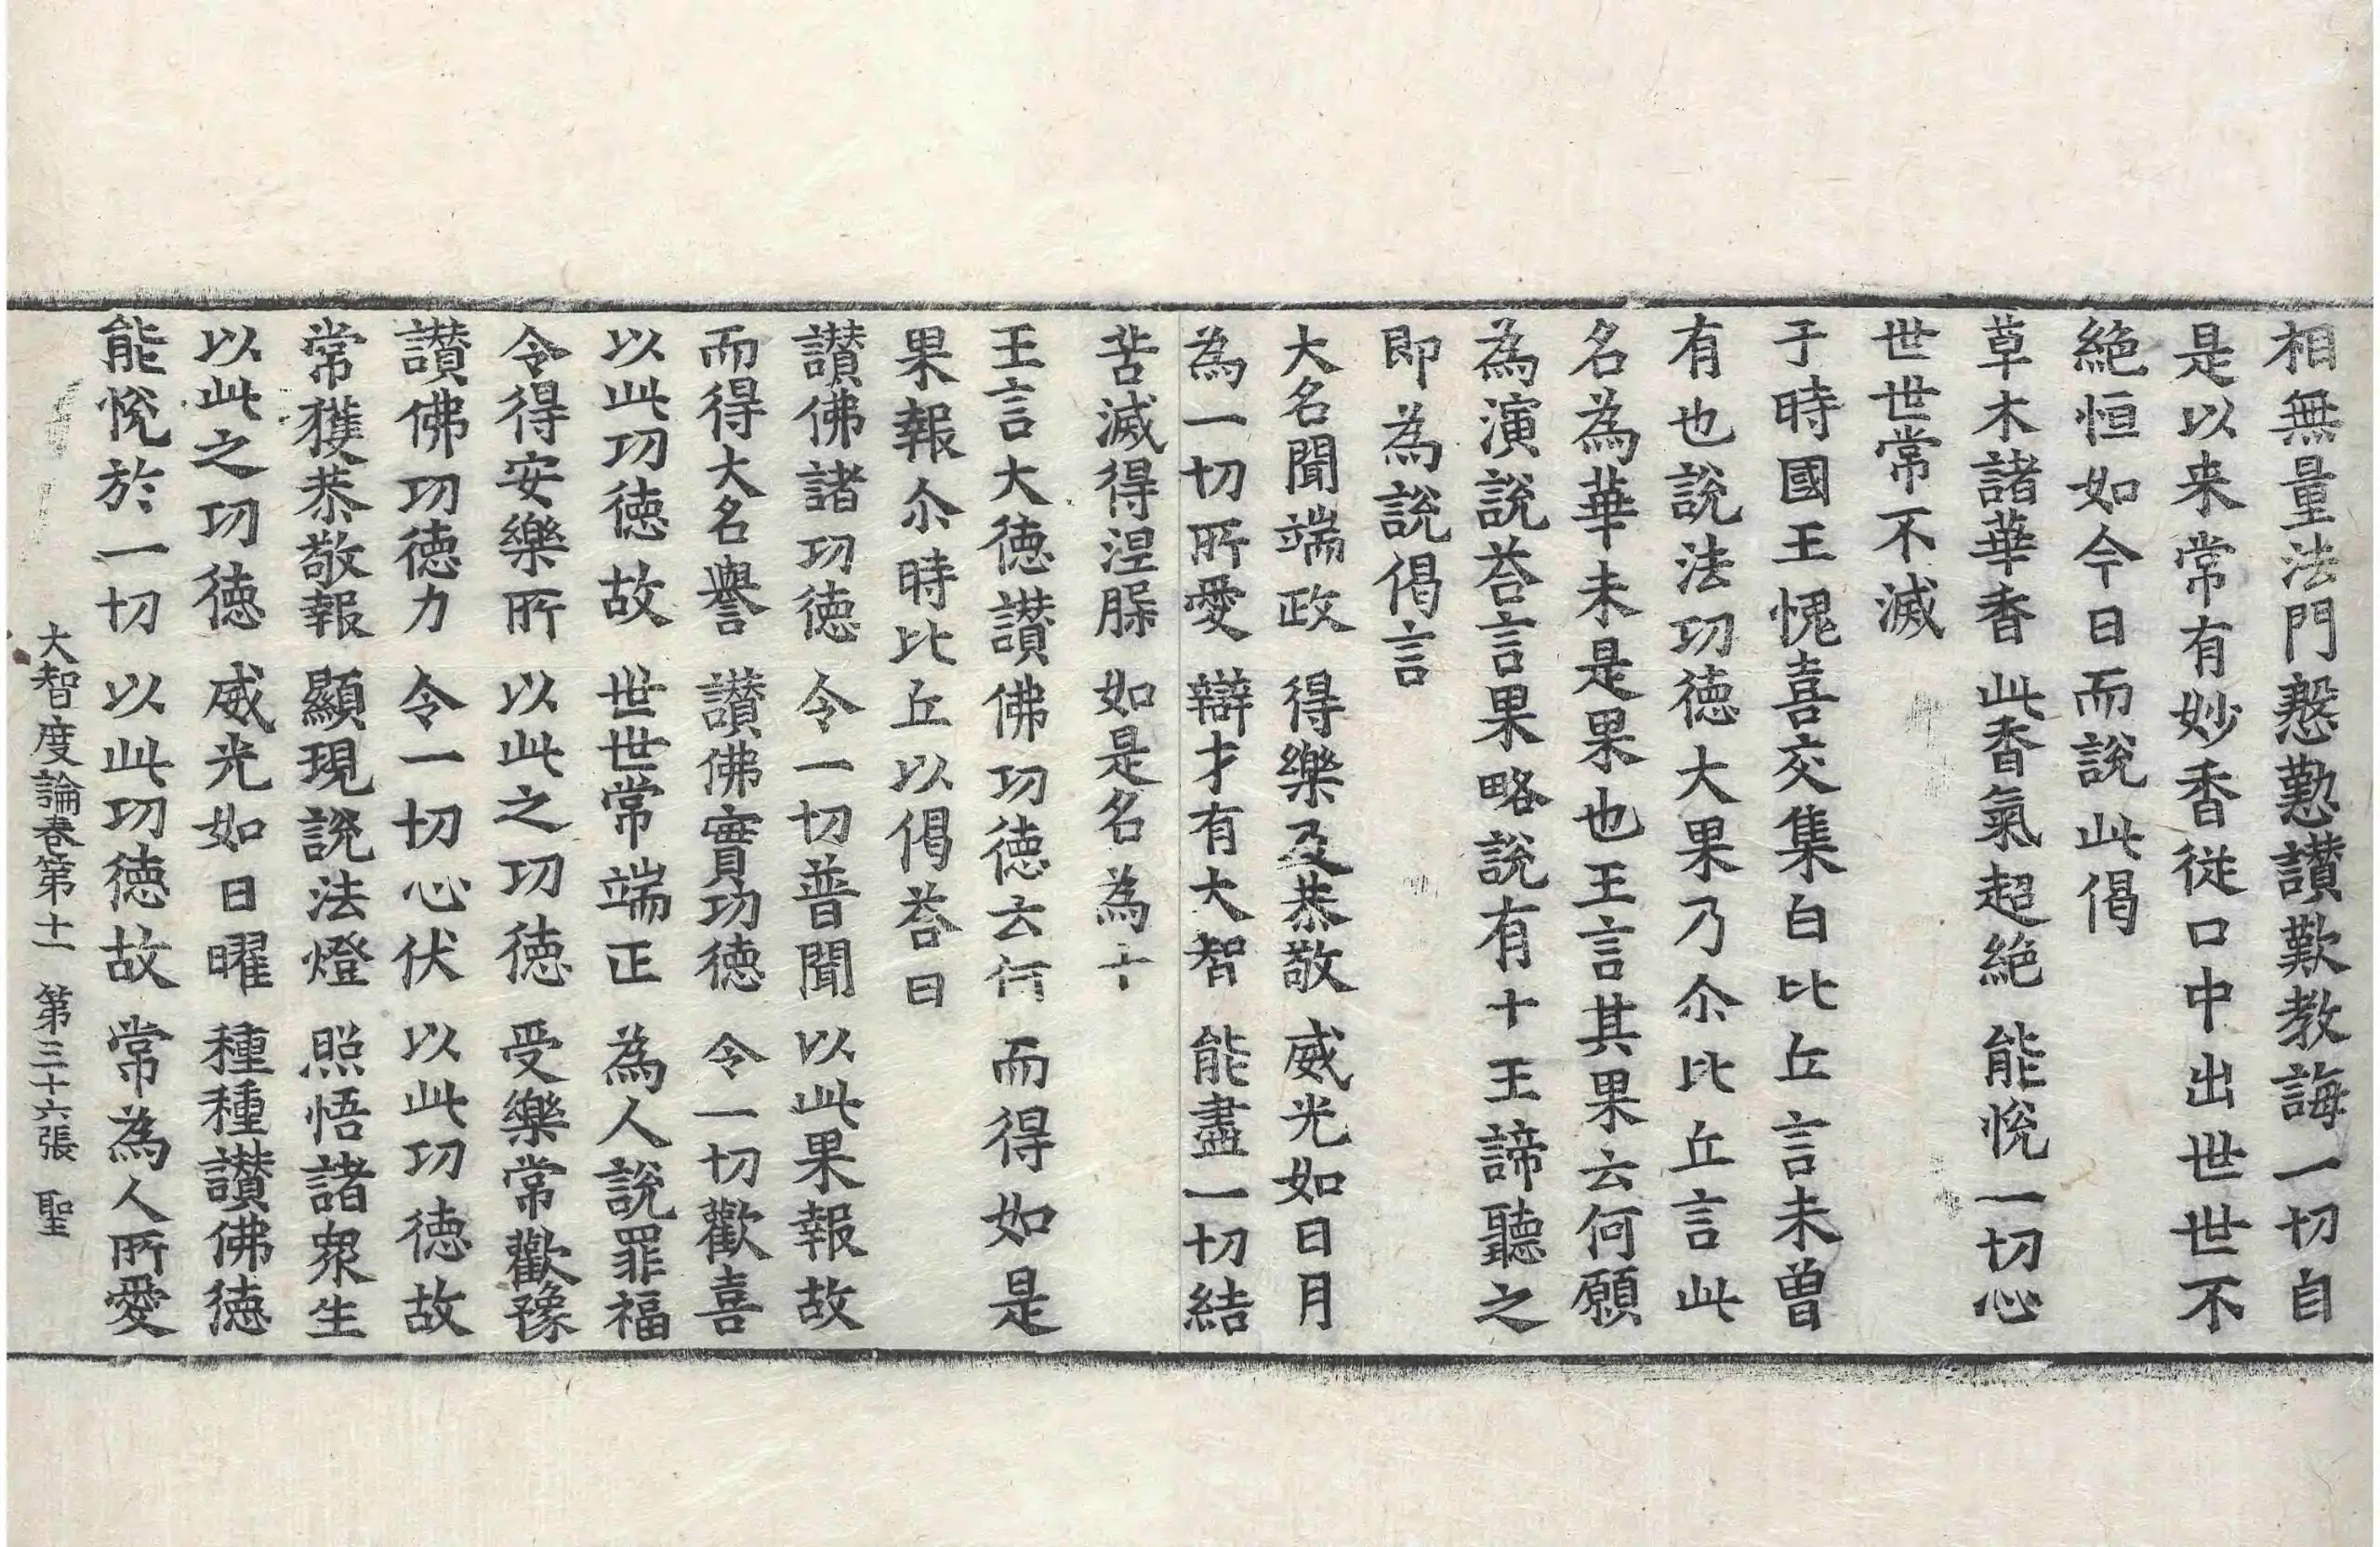 相無量法門慇懃讃歎教誨一切自
是以来常有妙香従口中出世世不
絶恒如今日而說此偈
草木諸華香 此香氣超絶 能悅一切心
世世常不滅
于時國王愧喜交集白比丘言未曽
有也說法功徳大果乃尒比丘言此
名為華未是果也王言其果云何願
為演說荅言果略說有十王諦聽之
即為說偈言
大名聞端政 得樂及恭敬 威光如日月
為一切所愛 辯才有大智 能盡一切結
苦滅得涅槃 如是名為十
王言大徳讃佛功徳云何 而得如是
果報尒時比丘以偈荅曰
讃佛諸功徳 令一切普聞 以此果報故
而得大名譽 讃佛實功徳 令一切歡喜
以此功徳故 世世常端正 為人說罪福
令得安樂所 以此之功徳 受樂常歡豫
讃佛功徳力 令一切心伏 以此功徳故
常獲恭敬報 顯現說法燈 照悟諸衆生
以此之功徳 威光如日曜 種種讃佛徳
能悅於一切 以此功徳故 常為人所愛
大智度論卷第十一 第三十六張 聖